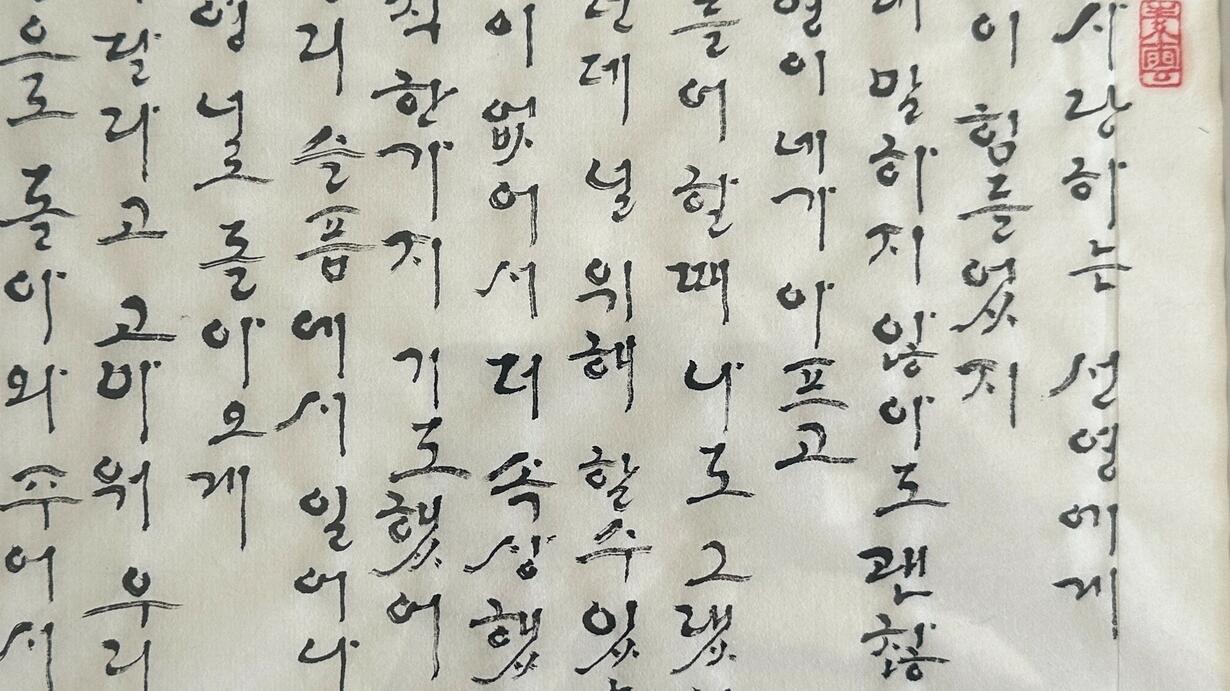 素雲
사랑하는 선영에게
이 힘들었지
말하지 않아도 괜찮
영이 네가 아프고
들어할때 나도 그랬
런데 널 위해 할수 있
이 없어서 더 속상했
직 한가지 기도했어
리 슬픔에서 일어나
영 너로 돌아오게
달라고 고마워 우리
으로 돌아와 주어서